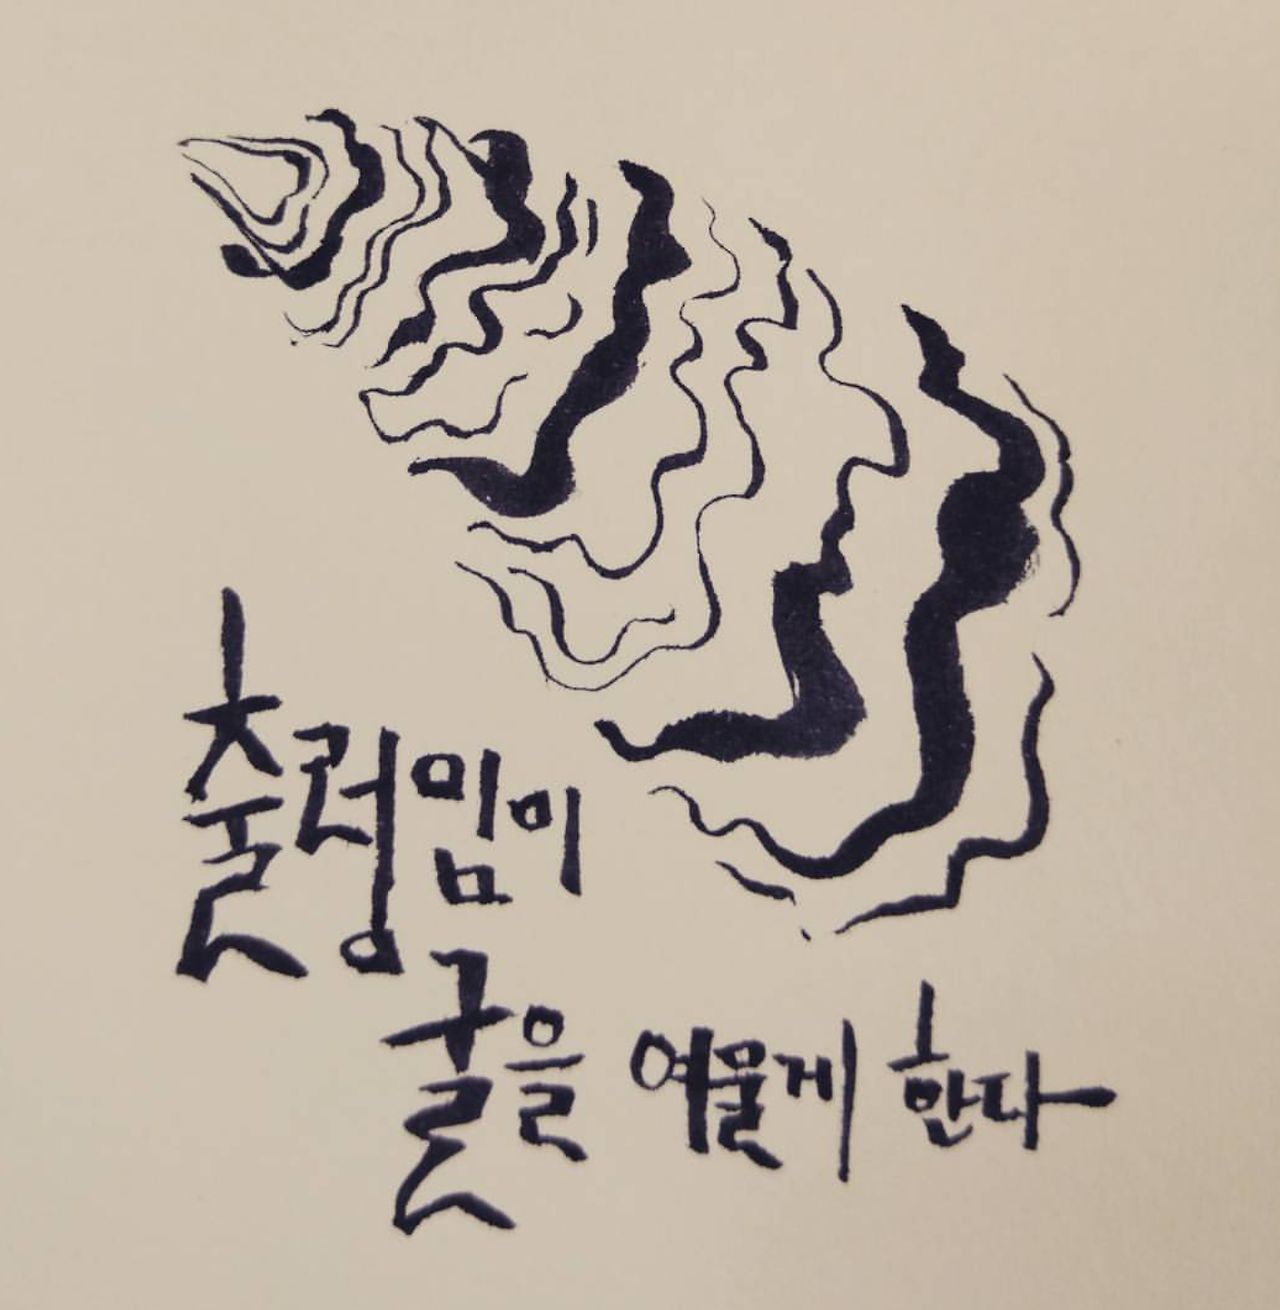 출렁임이
굴을 여물게 한다